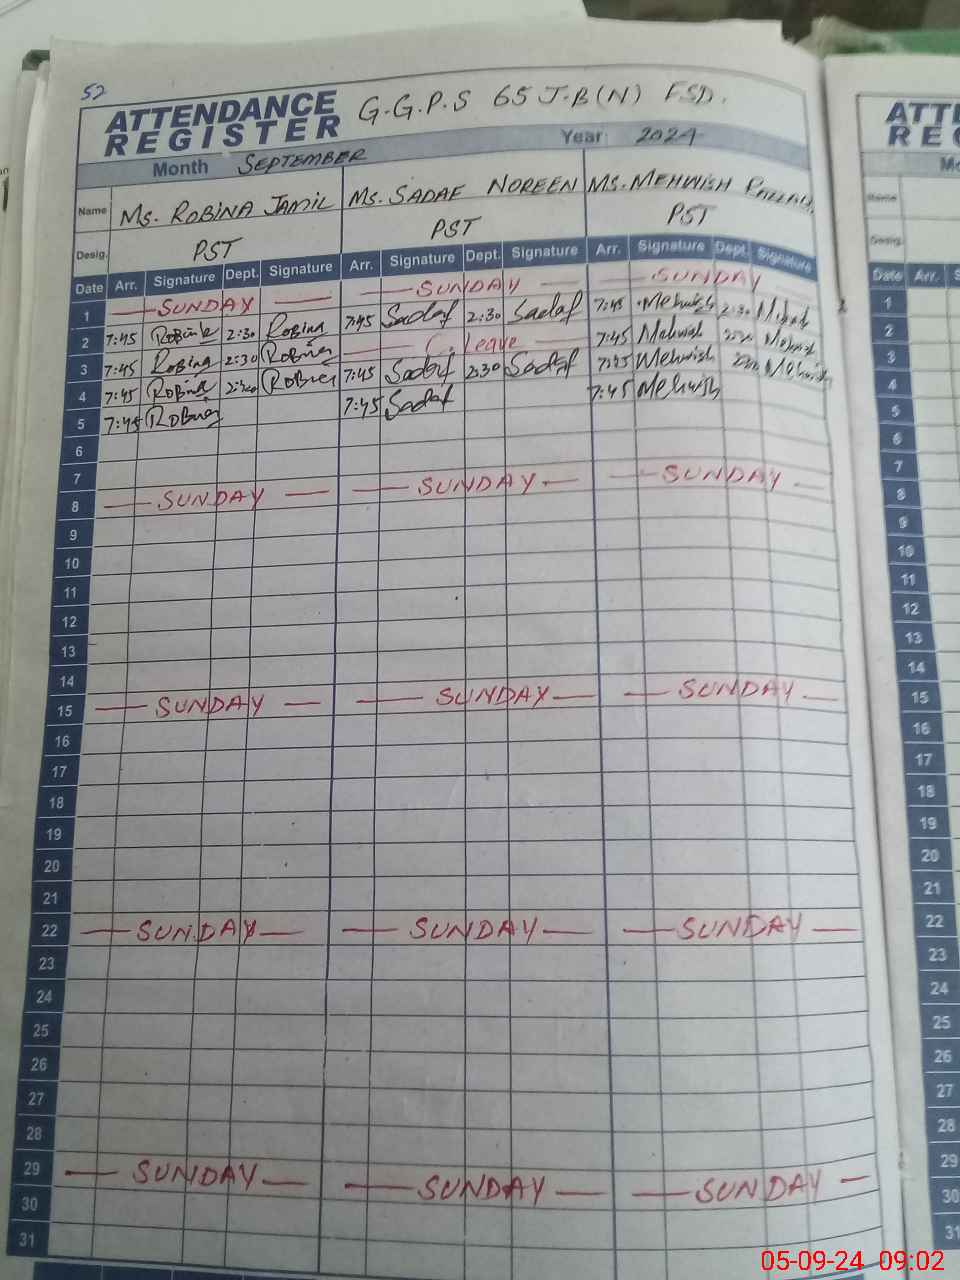 52
ATTENDANCE REGISTER G.G.P.S 65 J.B(N) FSD.
Month SEPTEMBER Year: 2024
Name Ms. ROBINA JAMIL Ms. SADAF NOREEN Ms. MEHWISH
Desig. PST PST PST
Date Arr. Signature Dept. Signature Arr. Signature Dept. Signature Arr. Signature Dept. Signature
1 SUNDAY SUNDAY SUNDAY
2 7:45 Robina 2:30 Robina 7:45 Sadaf 2:30 Sadaf 7:45 Mehwish 2:30 Mehwish
3 7:45 Robina 2:30 Robina C. Leave 7:45 Mehwish Mehwish
4 7:45 Robina Robina 7:45 Sadaf 2:30 Sadaf Mehwish Mehwish
5 7:45 Robina 7:45 Sadaf 7:45 Mehwish
6
7
8 SUNDAY SUNDAY SUNDAY
9
10
11
12
13
14
15 SUNDAY SUNDAY SUNDAY
16
17
18
19
20
21
22 SUNDAY SUNDAY SUNDAY
23
24
25
26
27
28
29 SUNDAY SUNDAY SUNDAY
30
31
ATT
RE
Name
Desig.
Date Arr.
1
2
3
4
5
6
7
8
9
10
11
12
13
14
15
16
17
18
19
20
21
22
23
24
25
26
27
28
29
30
31
05-09-24 09:02